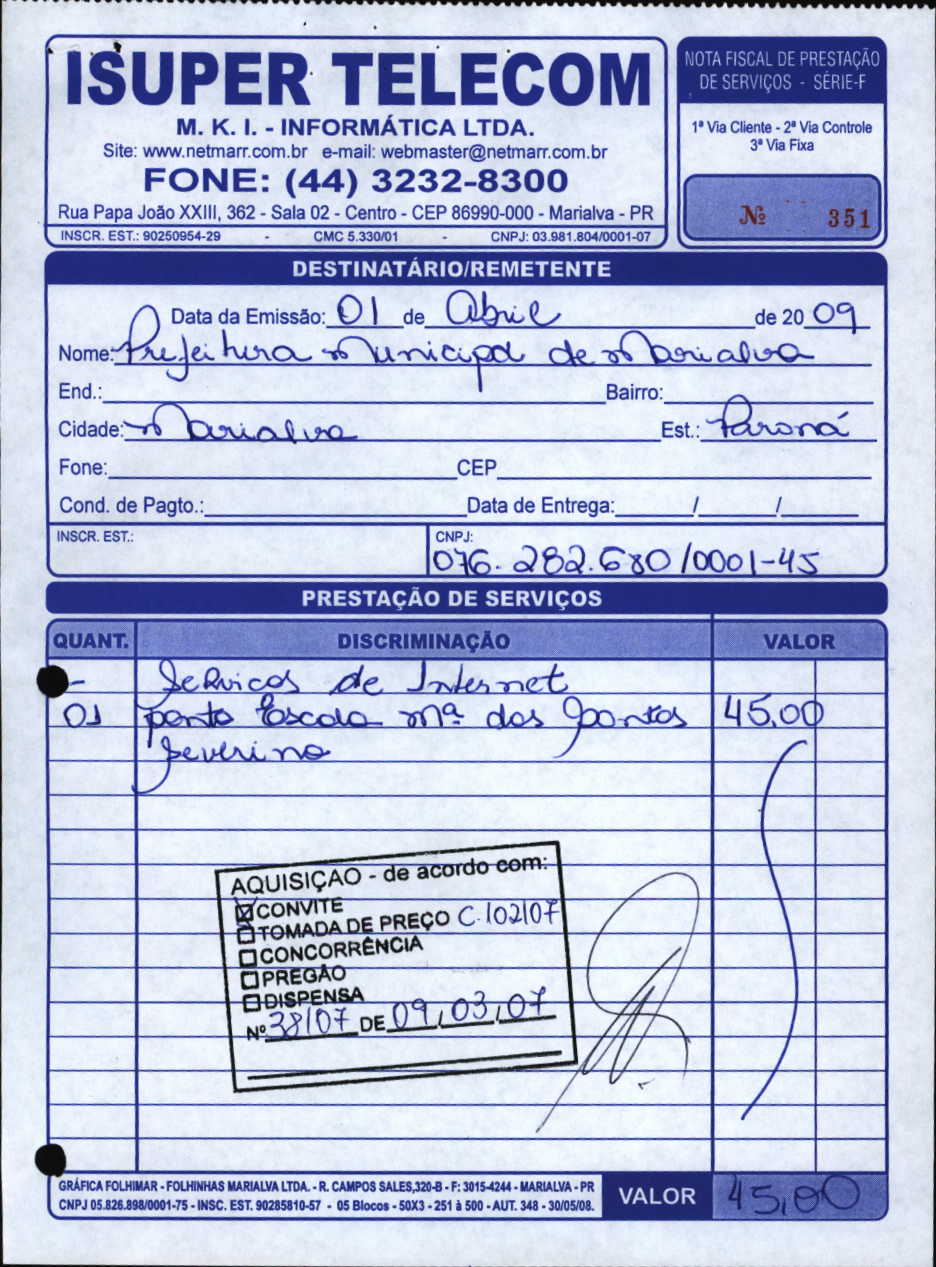 ISUPER TELECOM
M. K. I. - INFORMÁTICA LTDA.
Site: www.netmarr.com.br e-mail: webmaster@netmarr.com.br
FONE: (44) 3232-8300
Rua Papa João XXIII, 362 - Sala 02 - Centro - CEP 86990-000 - Marialva - PR
INSCR. EST.: 90250954-29 - CMC 5.330/01 - CNPJ: 03.981.804/0001-07
NOTA FISCAL DE PRESTAÇÃO
DE SERVIÇOS - SÉRIE-F
1ª Via Cliente - 2ª Via Controle
3ª Via Fixa
Nº 351
DESTINATÁRIO/REMETENTE
Data da Emissão: 01 de Abril de 20 09
Nome: Prefeitura Municipal de Marialva
End.: Bairro:
Cidade: Marialva Est.: Paraná
Fone: CEP
Cond. de Pagto.: Data de Entrega: / /
INSCR. EST.: CNPJ:
076.282.680/0001-45
PRESTAÇÃO DE SERVIÇOS
QUANT. DISCRIMINAÇÃO VALOR
- Serviços de Internet
01 ponto Escola Mª dos Santos 45,00
Severino
AQUISIÇÃO - de acordo com:
CONVITE
TOMADA DE PREÇO C.102/07
CONCORRÊNCIA
PREGÃO
DISPENSA
Nº 38/07 DE 09/03/07
GRÁFICA FOLHIMAR - FOLHINHAS MARIALVA LTDA. - R. CAMPOS SALES,320-B - F: 3015-4244 - MARIALVA - PR
CNPJ 05.826.898/0001-75 - INSC. EST. 90285810-57 - 05 Blocos - 50X3 - 251 à 500 - AUT. 348 - 30/05/08.
VALOR 45,00